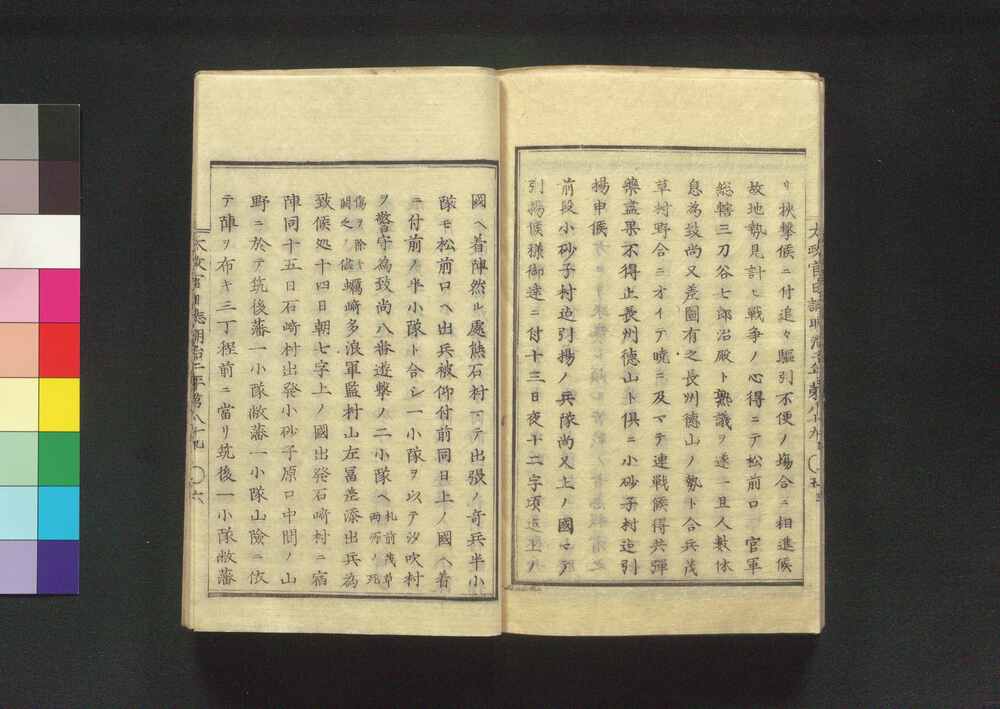 リ狄撃候ニ付追々駆引不便ノ場合ニ相進候
故地勢見計ヒ戦争ノ心得ニテ松前口官軍
総轄三刀谷七郎治殿ト熟議ヲ遂一旦人数休
息為致尚又差図有之長州徳山ノ勢ト合兵茂
草村野合ニオイテ暁ニ及マテ連戦候得共弾
薬盡果不得止長州徳山ト倶ニ小砂子村迠引
揚申候
前段小砂子村迠引揚ノ兵隊尚又上ノ國マテ
引揚候様御達ニ付十三日夜十二字頃迠上ノ
國ヘ着陣然ル處熊石村ニテ出張ノ奇兵半小
隊モ松前口ヘ出兵被仰付前同日上ノ國ヘ着
ニ付前ノ半小隊ト合シ一小隊ヲ以テ汐吹村
ヲ警守為致尚八番遊撃ノ二小隊ヘ札前茂草両所ノ死
傷ヲ除キ蠣崎多浪軍監村山左冨差添出兵為
致候処十四日朝七字上ノ國出発石崎村ニ宿
陣同十五日石崎村出発小砂子原口中間ノ山
野ニ於テ筑後藩一小隊敝藩一小隊山險ニ依
テ陣ヲ布キ三丁程前ニ當リ筑後一小隊敝藩
太政官日誌明治二年第八十九 六